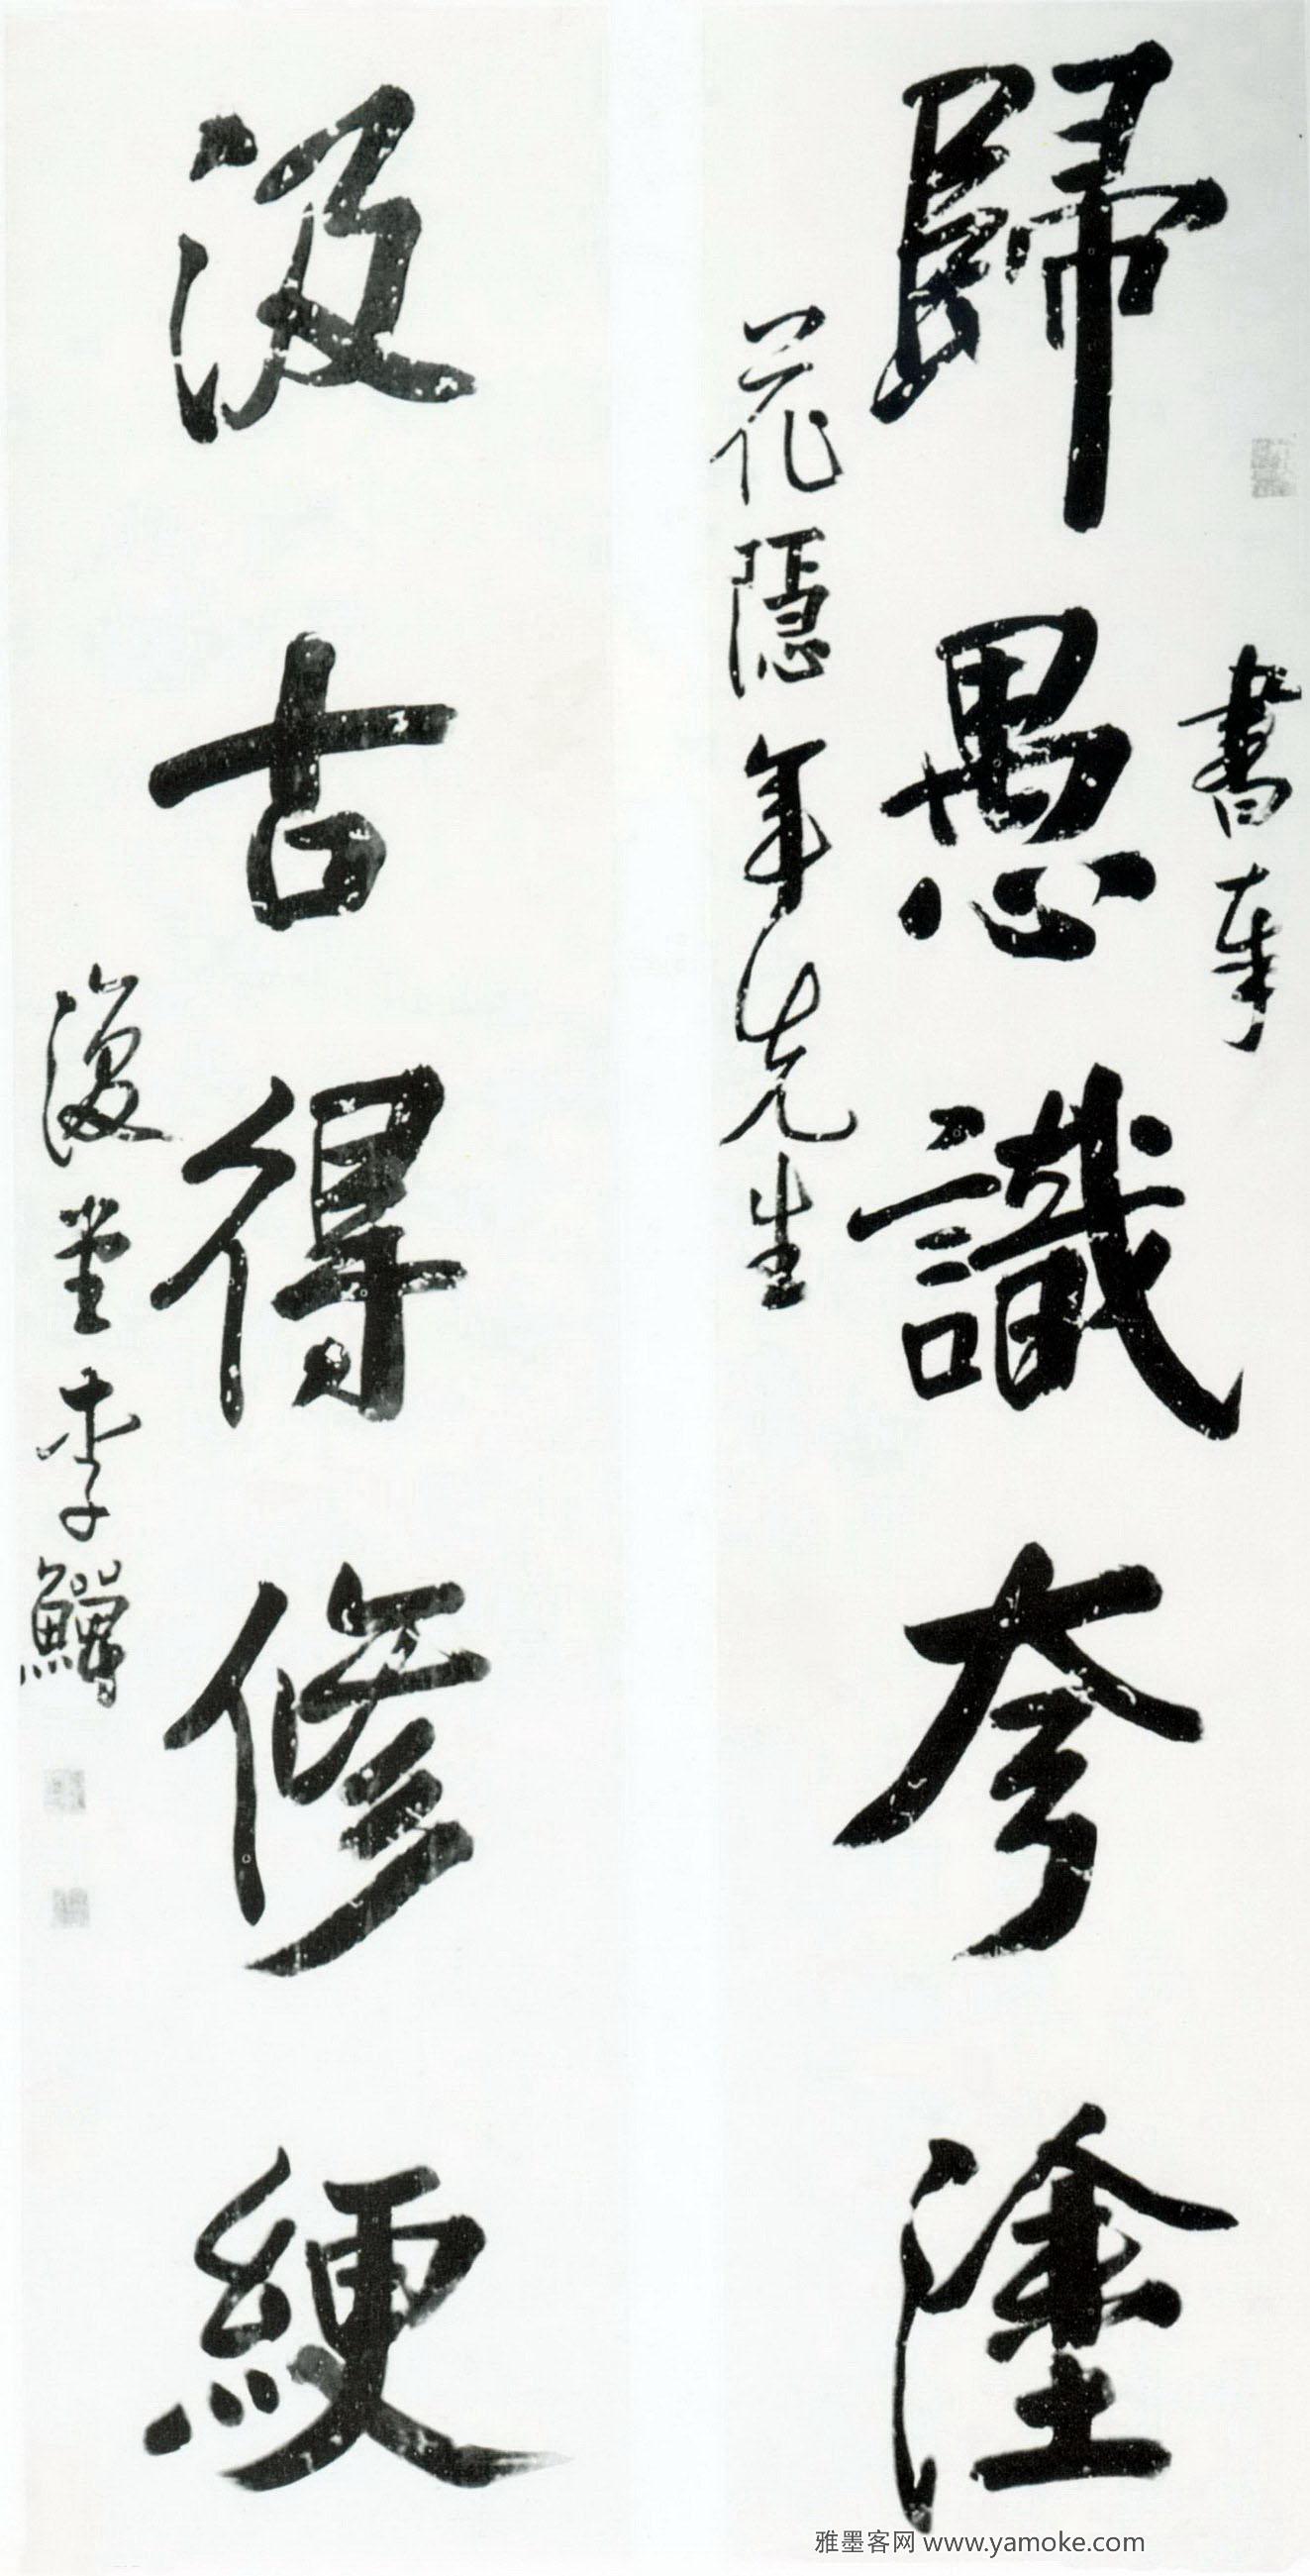 書奉
歸愚識夷塗
花隱年先生
汲古得修綆
復堂李鱓
雅墨客网 www.yamoke.com